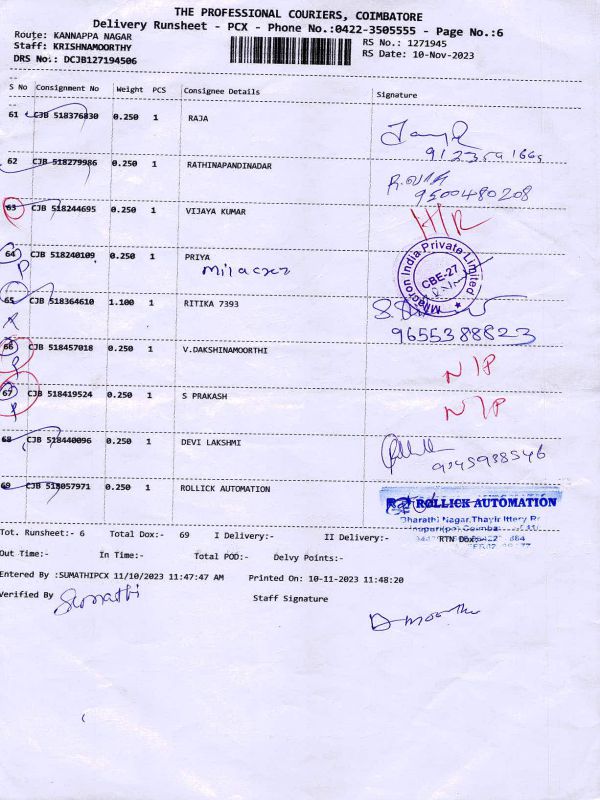 THE PROFESSIONAL COURIERS, COIMBATORE
Delivery Runsheet - PCX - Phone No.:0422-3505555 - Page No.:6
Route: KANNAPPA NAGAR RS No.: 1271945
Staff: KRISHNAMOORTHY RS Date: 10-Nov-2023
DRS No.: DCJB127194506
S No Consignment No Weight PCS Consignee Details Signature
61 CJB 518376830 0.250 1 RAJA
62 CJB 518279986 0.250 1 RATHINAPANDINADAR
9500480208
63 CJB 518244695 0.250 1 VIJAYA KUMAR H/R
64 CJB 518240109 0.250 1 PRIYA
P milacron
Milacron India Private Limited
CBE-27
65 CJB 518364610 1.100 1 RITIKA 7393
9655388823
66 CJB 518457018 0.250 1 V.DAKSHINAMOORTHI N/P
67 CJB 518419524 0.250 1 S PRAKASH N/P
68 CJB 518440096 0.250 1 DEVI LAKSHMI
9245938546
69 CJB 518057971 0.250 1 ROLLICK AUTOMATION
ROLLICK AUTOMATION
Bharathi Nagar, Thayir Ittery
Tot. Runsheet:- 6 Total Dox:- 69 I Delivery:- II Delivery:- RTN Dox:-
Out Time:- In Time:- Total POD:- Delvy Points:-
Entered By :SUMATHIPCX 11/10/2023 11:47:47 AM Printed On: 10-11-2023 11:48:20
Verified By Sumathi Staff Signature